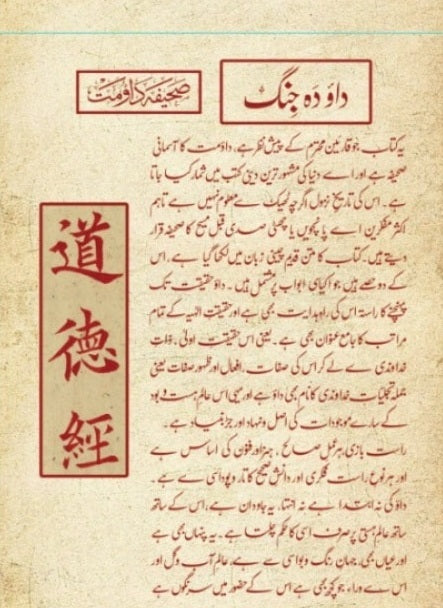 داؤ دَہ جِنگ
صحیفہ داؤمت
یہ کتاب جو قارئین محترم کے پیش نظر ہے، داؤمت کا آسمانی
صحیفہ ہے اور اسے دنیا کی مشہور ترین دینی کتب میں شمار کیا جاتا
ہے۔ اس کی تاریخ نزول اگرچہ ٹھیک سے معلوم نہیں ہے تاہم
اکثر مفکرین اسے پانچویں یا چھٹی صدی قبل مسیح کا صحیفہ قرار
دیتے ہیں۔ کتاب کا متن قدیم چینی زبان میں لکھا گیا ہے۔ اس
کے دو حصے ہیں جو اکیاسی ابواب پر مشتمل ہیں۔ داؤ حقیقت تک
پہنچنے کا راستہ اس کی راہ ہدایت بھی ہے اور حقیقتِ الٰہیہ کے تمام
مراتب کا جامع عنوان بھی ہے۔ یعنی اس حقیقت اولیٰ، ذاتِ
خداوندی سے لے کر اس کی صفات، افعال اور ظہور صفات یعنی
جملہ تجلیات خداوندی کا نام بھی داؤ ہے اور یہی اس عالم ہست و بود
کے سارے موجودات کی اصل و نہاد اور جڑ بنیاد ہے۔
راست بازی، ہر عمل صالح، ہنر اور فنون کی اساس ہے
اور ہر نوع راست فکری اور دانش صحیح کا تار و پود اسی سے ہے۔
داؤ کی نہ ابتدا ہے نہ انتہا، یہ جاودان ہے، اس کے ساتھ
ساتھ عالم ہستی پر صرف اسی کا حکم چلتا ہے۔ یہ پنہاں بھی ہے
اور عیاں بھی، جہان رنگ و بو اسی سے ہے، عالم آب و گل اور
اس سے وراء جو کچھ بھی ہے اس کے حضور میں سرنگوں ہے
道
德
經